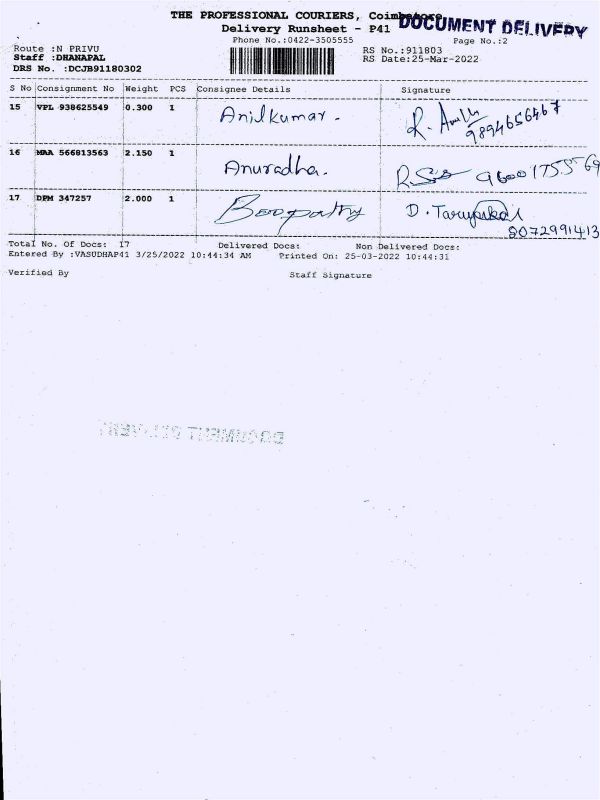 THE PROFESSIONAL COURIERS, Coimbatore
DOCUMENT DELIVERY
Delivery Runsheet - P41
Phone No.:0422-3505555
Page No.:2
Route :N PRIVU
RS No.:911803
Staff :DHANAPAL
RS Date:25-Mar-2022
DRS No. :DCJB91180302
S No Consignment No Weight PCS Consignee Details Signature
15 VPL 938625549 0.300 1 Anilkumar.
9894656467
16 MAA 566813563 2.150 1 Anuradha.
17 DPM 347257 2.000 1 Boopathy D.
8072991413
Total No. Of Docs: 17 Delivered Docs: Non Delivered Docs:
Entered By :VASUDHAP41 3/25/2022 10:44:34 AM Printed On: 25-03-2022 10:44:31
Verified By Staff Signature